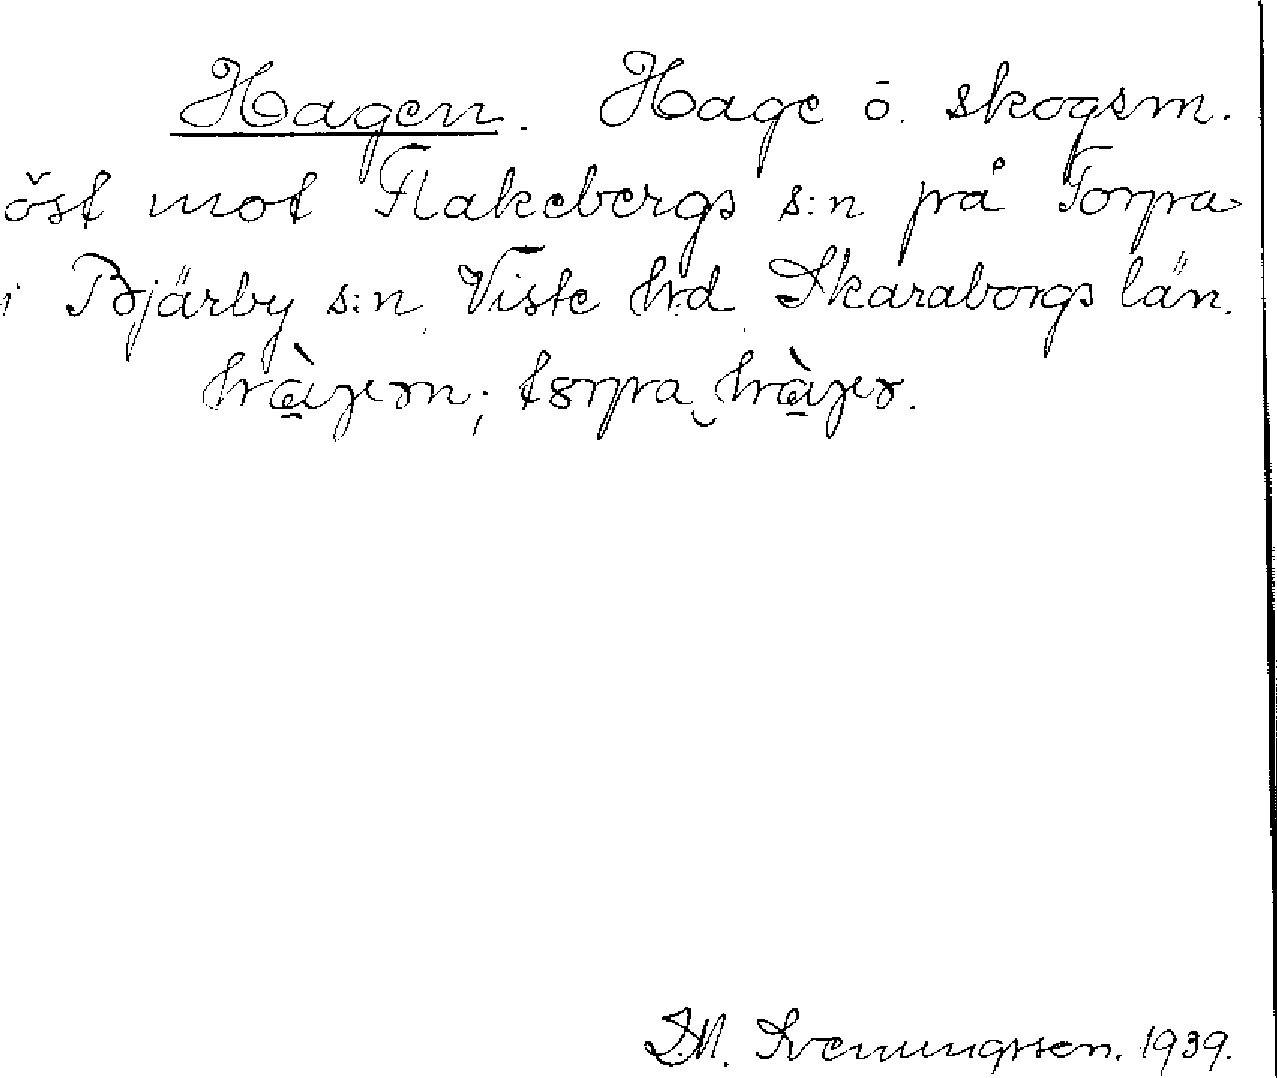 Hagen. Hage o. skogsm.
öst mot Flakebergs s:n på Torpa
i Bjärby s:n, Viste hd, Skaraborgs län.
S.M. Svenungsson. 1939.